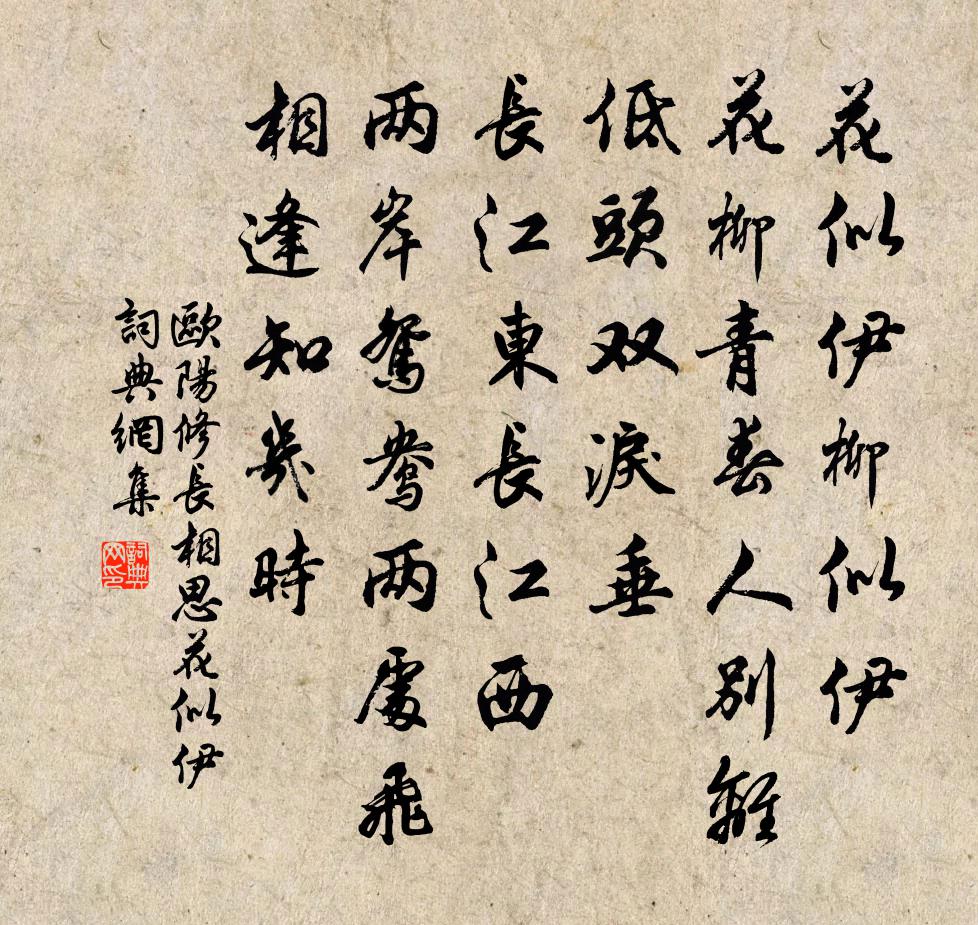 花似伊柳似伊
花柳青春人别離
低頭双淚垂
長江東長江西
两岸鴛鴦两處飛
相逢知幾時
歐陽修長相思花似伊
詞典網集
詞典
网印